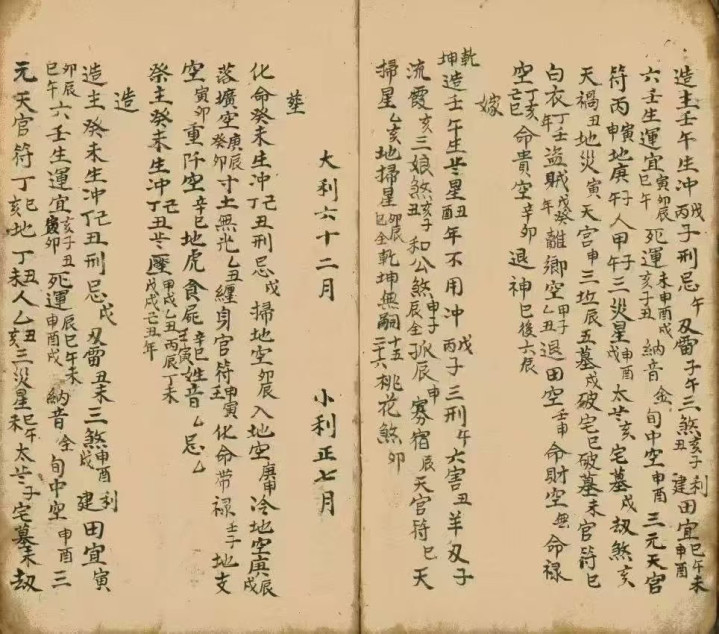 造主壬午生冲丙戊子刑忌午刃雷子午三煞亥子丑利建田宜巳午未申酉
六壬生運宜寅卯辰巳午死運未申酉戌亥子丑納音金旬中空申酉三元天官
符丙申寅地庚子午人甲子午三災星申酉戌太岁亥宅墓戌劫煞亥
天禍丑地災寅天官申三坟辰五墓戌破宅巳破墓未官符巳
白衣丁壬年盜賊戊癸年離鄉空甲子乙丑退田空壬申命財空無命祿
空丁亥己巳命貴空辛卯退神巳後六辰
嫁
乾坤造壬午生岁星丑酉年不用冲戊丙子三刑午六害丑羊刃子
流霞亥三娘煞亥子丑和公煞申子辰全孤辰申寡宿辰天官符巳天
掃星乙亥地掃星卯辰巳全乾坤無嗣十五二十六桃花煞卯
大利六十二月 小利正七月
塟
化命癸未生冲丁己丑刑忌戌掃地空卯辰入地空庚申冷地空庚戌辰
落壙空庚辰癸卯寸土無光乙丑纏身官符申寅壬化命帶祿壬子地支
空寅卯重阡空辛巳地虎食屍辛巳壬寅姓音厶忌厶
祭主癸未生冲丁己丑岁壓甲戌乙丑丙辰丁未戊戌己丑年
造
造主癸未生冲丁己丑刑忌戌刃雷丑未三煞申酉戌利建田宜寅
卯辰巳午六壬生運宜亥子丑寅卯死運辰巳午未申酉戌納音金旬中空申酉三
元天官符丁巳亥地丁丑未人乙丑亥三災星巳午未太岁子宅墓未劫